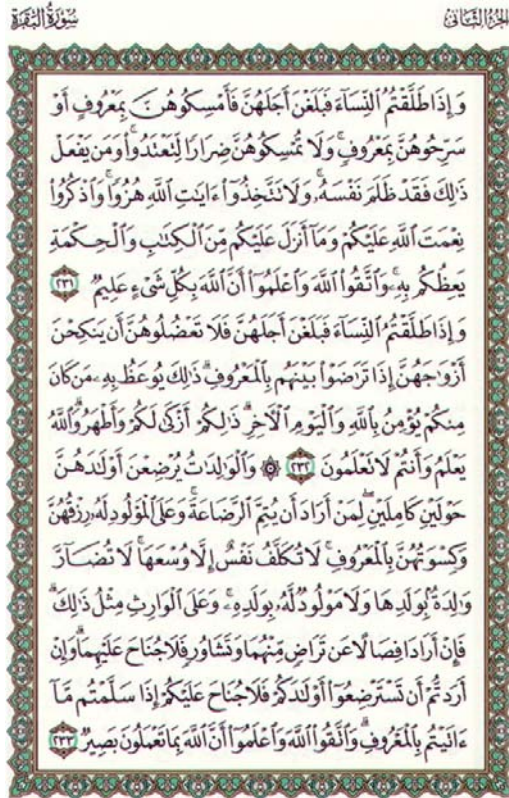 سُورَةُ البَقَرَةِ
الجُزءُ الثَّانِي
وَإِذَا طَلَّقْتُمُ ٱلنِّسَآءَ فَبَلَغْنَ أَجَلَهُنَّ فَأَمْسِكُوهُنَّ بِمَعْرُوفٍ أَوْ
سَرِّحُوهُنَّ بِمَعْرُوفٍ ۚ وَلَا تُمْسِكُوهُنَّ ضِرَارًا لِّتَعْتَدُوا۟ ۚ وَمَن يَفْعَلْ
ذَٰلِكَ فَقَدْ ظَلَمَ نَفْسَهُۥ ۚ وَلَا تَتَّخِذُوٓا۟ ءَايَٰتِ ٱللَّهِ هُزُوًا ۚ وَٱذْكُرُوا۟
نِعْمَتَ ٱللَّهِ عَلَيْكُمْ وَمَآ أَنزَلَ عَلَيْكُم مِّنَ ٱلْكِتَٰبِ وَٱلْحِكْمَةِ
يَعِظُكُم بِهِۦ ۚ وَٱتَّقُوا۟ ٱللَّهَ وَٱعْلَمُوٓا۟ أَنَّ ٱللَّهَ بِكُلِّ شَىْءٍ عَلِيمٌ ٢٣١
وَإِذَا طَلَّقْتُمُ ٱلنِّسَآءَ فَبَلَغْنَ أَجَلَهُنَّ فَلَا تَعْضُلُوهُنَّ أَن يَنكِحْنَ
أَزْوَٰجَهُنَّ إِذَا تَرَٰضَوْا۟ بَيْنَهُم بِٱلْمَعْرُوفِ ۗ ذَٰلِكَ يُوعَظُ بِهِۦ مَن كَانَ
مِنكُمْ يُؤْمِنُ بِٱللَّهِ وَٱلْيَوْمِ ٱلْءَاخِرِ ۗ ذَٰلِكُمْ أَزْكَىٰ لَكُمْ وَأَطْهَرُ ۗ وَٱللَّهُ
يَعْلَمُ وَأَنتُمْ لَا تَعْلَمُونَ ٢٣٢ ۞ وَٱلْوَٰلِدَٰتُ يُرْضِعْنَ أَوْلَٰدَهُنَّ
حَوْلَيْنِ كَامِلَيْنِ ۖ لِمَنْ أَرَادَ أَن يُتِمَّ ٱلرَّضَاعَةَ ۚ وَعَلَى ٱلْمَوْلُودِ لَهُۥ رِزْقُهُنَّ
وَكِسْوَتُهُنَّ بِٱلْمَعْرُوفِ ۚ لَا تُكَلَّفُ نَفْسٌ إِلَّا وُسْعَهَا ۚ لَا تُضَآرَّ
وَٰلِدَةٌۢ بِوَلَدِهَا وَلَا مَوْلُودٌ لَّهُۥ بِوَلَدِهِۦ ۚ وَعَلَى ٱلْوَارِثِ مِثْلُ ذَٰلِكَ ۗ
فَإِنْ أَرَادَا فِصَالًا عَن تَرَاضٍ مِّنْهُمَا وَتَشَاوُرٍ فَلَا جُنَاحَ عَلَيْهِمَا ۗ وَإِنْ
أَرَدتُّمْ أَن تَسْتَرْضِعُوٓا۟ أَوْلَٰدَكُمْ فَلَا جُنَاحَ عَلَيْكُمْ إِذَا سَلَّمْتُم مَّآ
ءَاتَيْتُم بِٱلْمَعْرُوفِ ۗ وَٱتَّقُوا۟ ٱللَّهَ وَٱعْلَمُوٓا۟ أَنَّ ٱللَّهَ بِمَا تَعْمَلُونَ بَصِيرٌ ٢٣٣